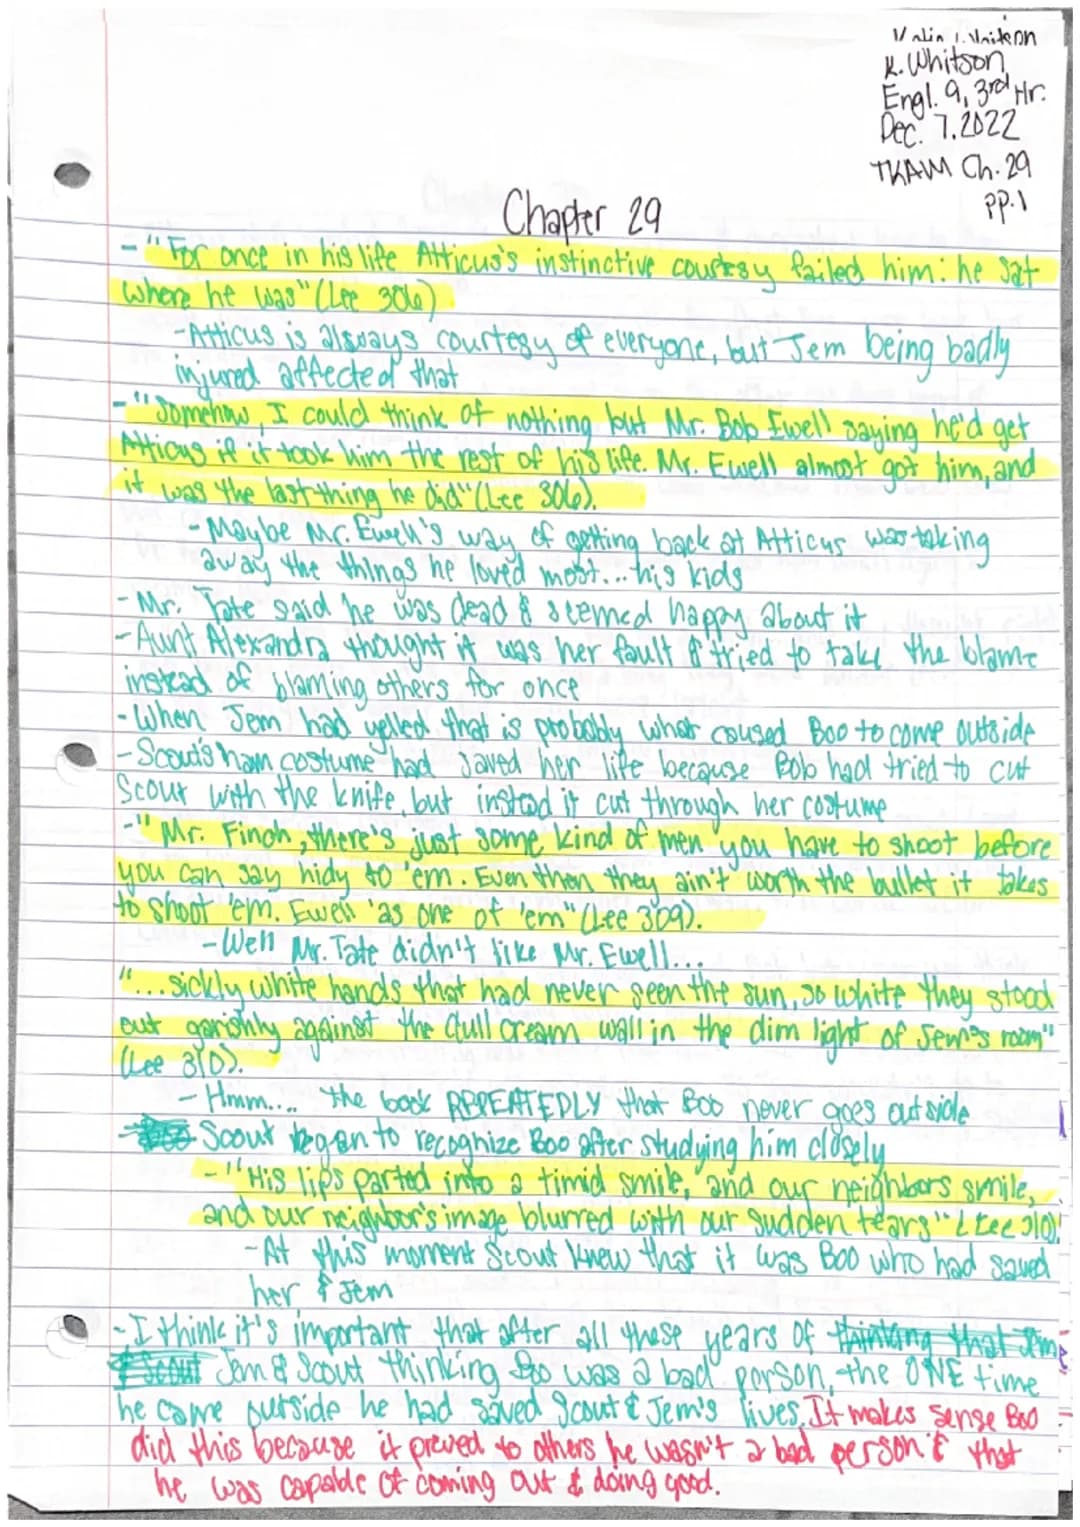 K. Whitson
Engl. 9, 3rd Hr.
Dec. 7, 2022
TKAM Ch. 29
pp. 1
Chapter 29
- "For once in his life Atticus's instinctive courtesy failed him: he sat
where he was" (Lee 306)
- Atticus is always courtesy of everyone, but Jem being badly
injured affected that
- "Somehow, I could think of nothing but Mr. Bob Ewell saying he'd get
Atticus if it took him the rest of his life. Mr. Ewell almost got him, and
it was the last thing he did" (Lee 306).
- Maybe Mr. Ewell's way of getting back at Atticus was taking
away the things he loved most... his kids
- Mr. Tate said he was dead & seemed happy about it
- Aunt Alexandra thought it was her fault & tried to take the blame
instead of blaming others for once
- When Jem had yelled that is probably what caused Boo to come outside
- Scout's ham costume had saved her life because Bob had tried to cut
Scout with the knife, but instead it cut through her costume
- "Mr. Finch, there's just some kind of men you have to shoot before
you can say hidy to 'em. Even then they ain't worth the bullet it takes
to shoot 'em. Ewell 'as one of 'em" (Lee 309).
- Well Mr. Tate didn't like Mr. Ewell...
"...sickly white hands that had never seen the sun, so white they stood
out garishly against the dull cream wall in the dim light of Jem's room"
(Lee 310).
- Hmm.... the book REPEATEDLY that Boo never goes outside
- Scout began to recognize Boo after studying him closely
- "His lips parted into a timid smile, and our neighbors smile,
and our neighbor's image blurred with our sudden tears" (Lee 310).
- At this moment Scout knew that it was Boo who had saved
her & Jem
- I think it's important that after all these years of thinking that Jem
& Scout Jem & Scout thinking Boo was a bad person, the ONE time
he came outside he had saved Scout & Jem's lives. It makes sense Boo
did this because it proved to others he wasn't a bad person & that
he was capable of coming out & doing good.